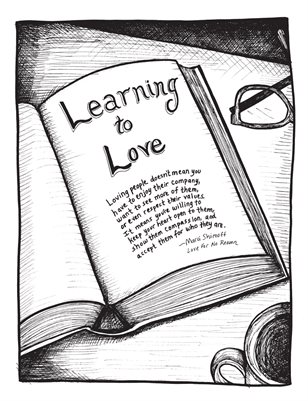 Learning
to
Love
Loving people doesn't mean you
have to enjoy their company,
want to see more of them,
or even respect their values.
It means you're willing to
keep your heart open to them,
show them compassion, and
accept them for who they are.
—Marci Shimoff
Love for No Reason